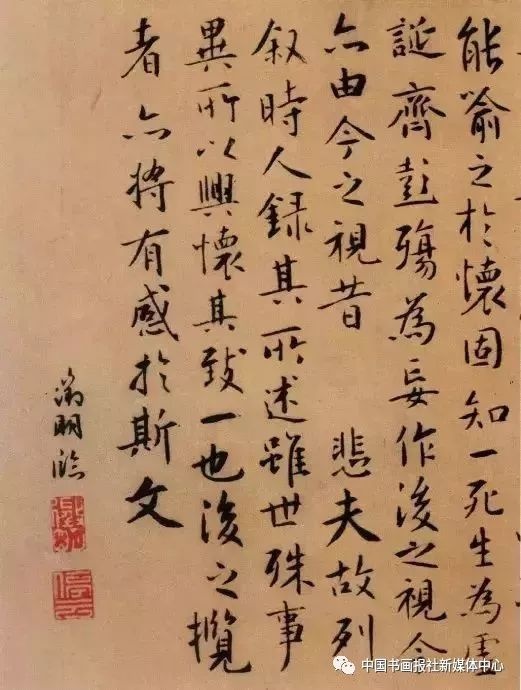 能喻之於懷固知一死生為虛
誕齊彭殤為妄作後之視今
亦由今之視昔 悲夫故列
叙時人錄其所述雖世殊事
異所以興懷其致一也後之攬
者亦將有感於斯文
徵明臨
中国书画报社新媒体中心